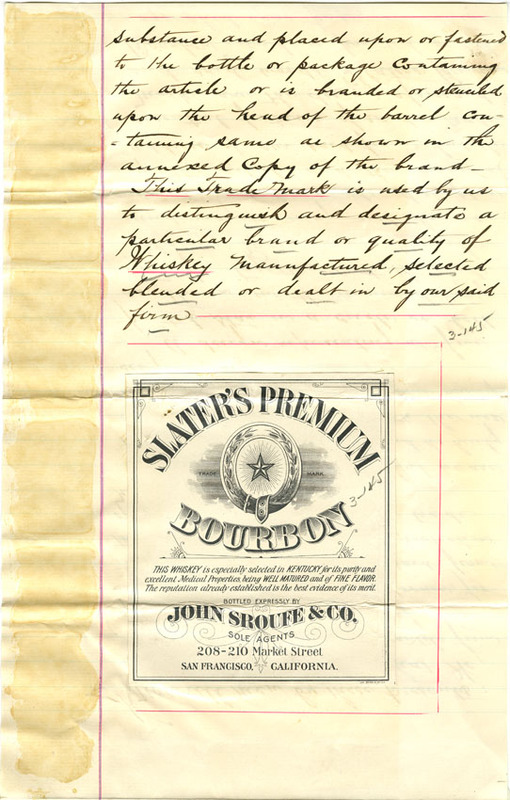 substance and placed upon or fastened
to the bottle or package containing
the article or is branded or stenciled
upon the head of the barrel con-
-taining same as shown in the
annexed Copy of the brand-
This Trade Mark is used by us
to distinguish and designate a
particular brand or quality of
Whiskey Manufactured, selected
blended or dealt in by our said
firm
3-145
SLATER'S PREMIUM
TRADE MARK
3-145
BOURBON
THIS WHISKEY is especially selected in KENTUCKY for its purity and
excellent Medical Properties, being WELL MATURED and of FINE FLAVOR.
The reputation already established is the best evidence of its merit.
BOTTLED EXPRESSLY BY
JOHN SROUFE & CO.
SOLE AGENTS
208-210 Market Street
SAN FRANCISCO, CALIFORNIA.